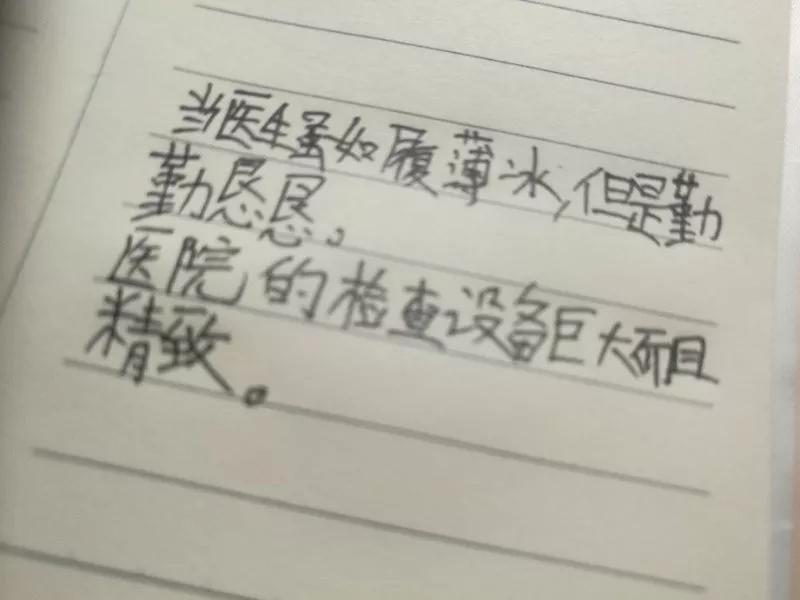 当医生虽如履薄冰,但是勤
勤恳恳。
医院的检查设备巨大而且
精致。